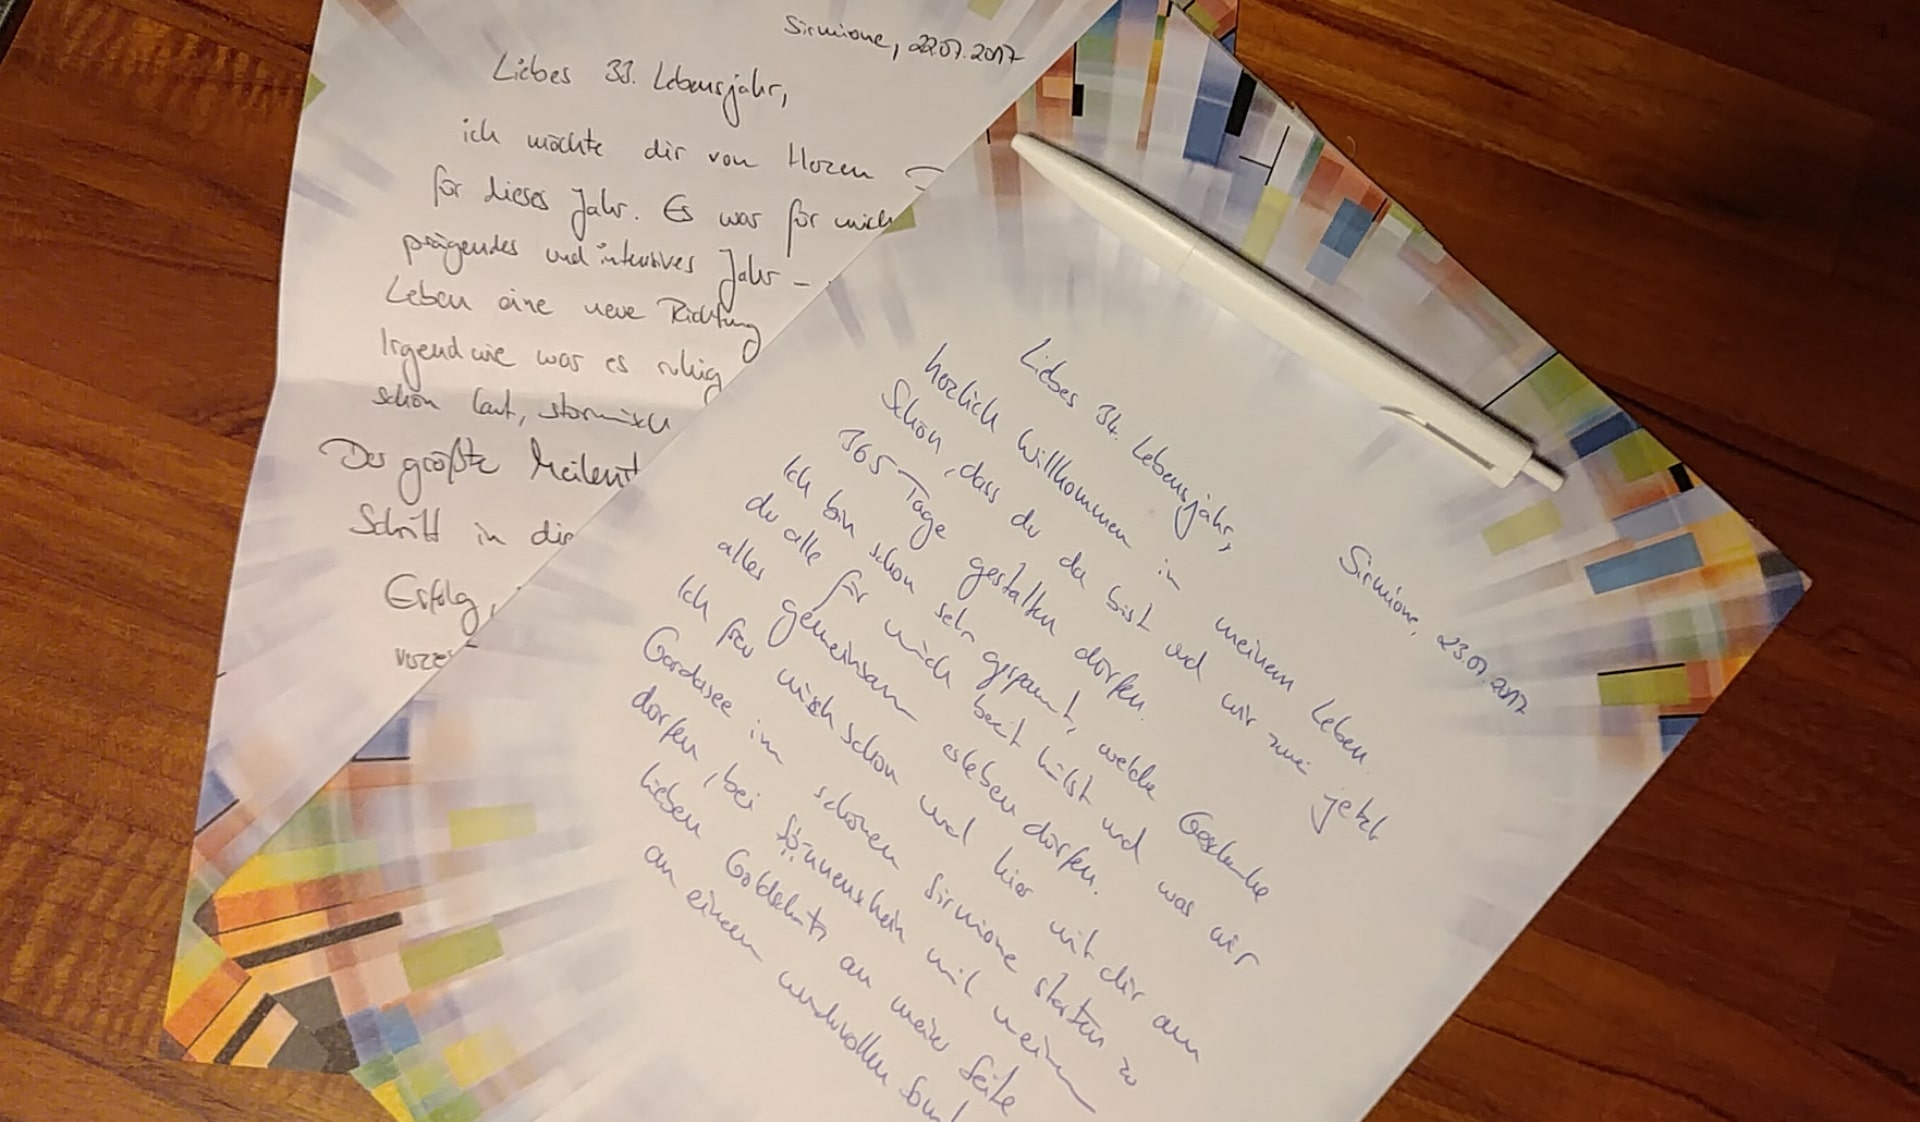 Sirmione, 22.07.2017
Liebes 33. Lebensjahr,
ich möchte dir von Herzen
für dieses Jahr. Es war für mich
prägendes und intensives Jahr –
Leben eine neue Richtung
Irgendwie war es ruhig
schön laut, stürmisch
Der größte Meilenst
Schritt in die
Erfolg,
Sirmione, 23.07.2017
Liebes 34. Lebensjahr,
herzlich Willkommen in meinem Leben.
Schön, dass du da bist und wir zwei jetzt
365 Tage gestalten dürfen.
Ich bin schon sehr gespannt, welche Geschenke
du alle für mich bereit hälst und was wir
alles gemeinsam erleben dürfen.
Ich freu mich schon und hier mit dir am
Gardasee im schönen Sirmione starten zu
dürfen, bei Sonnenschein mit meinem
lieben Goldschatz an meiner Seite
an einem wundervollen